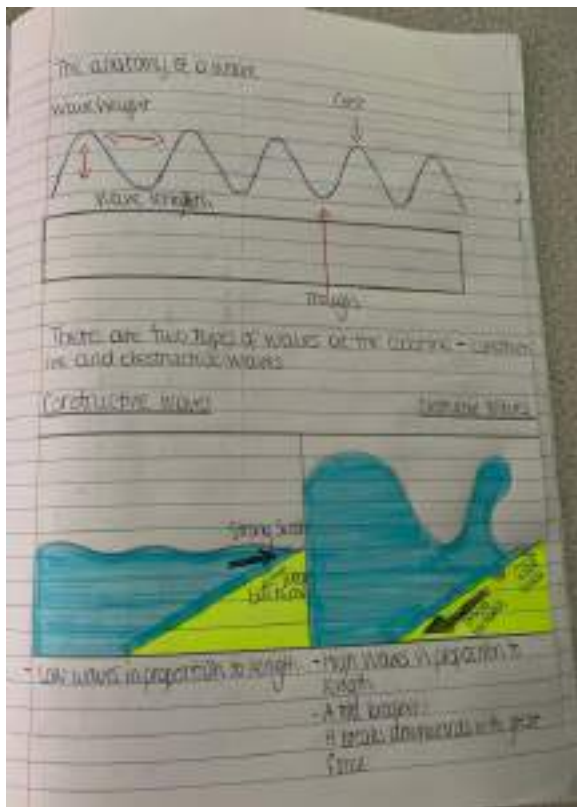 The anatomy of a wave
Wave height
Crest
Wave length
Trough
There are two types of waves at the coastline - constructive
and destructive waves
Constructive waves
Destructive waves
Strong swash
weak
backwash
- Low waves in proportion to length
- High waves in proportion to
length
- A tall breaker
It breaks downwards with great
force